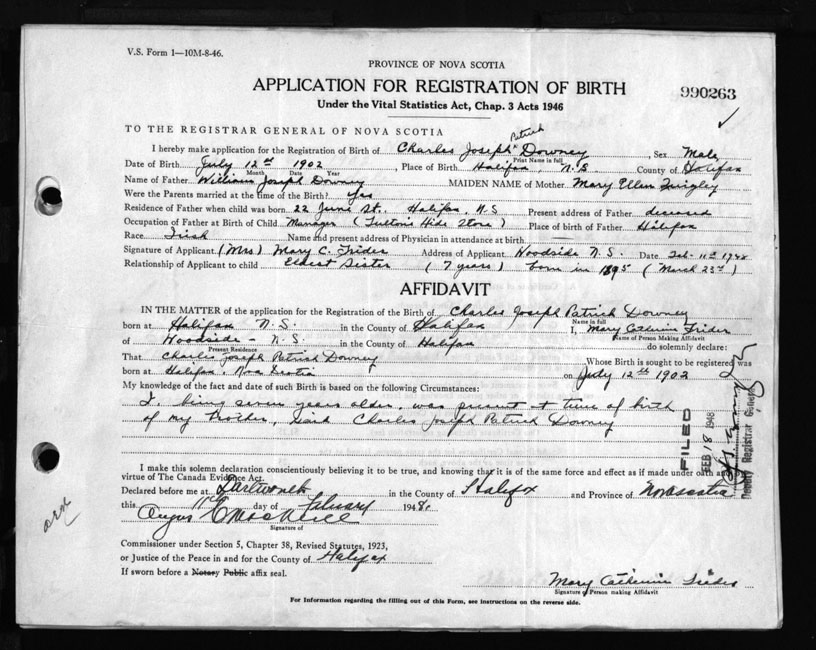 V.S. Form 1—10M-8-46.
PROVINCE OF NOVA SCOTIA
APPLICATION FOR REGISTRATION OF BIRTH
990263
Under the Vital Statistics Act, Chap. 3 Acts 1946
TO THE REGISTRAR GENERAL OF NOVA SCOTIA
Patrick
I hereby make application for the Registration of Birth of Charles Joseph Downey, Sex Male
Print Name in full
Date of Birth July 12th 1902, Place of Birth Halifax, N.S County of Halifax
Month Date Year
Name of Father William Joseph Downey MAIDEN NAME of Mother Mary Ellen Quigley
Were the Parents married at the time of the Birth? Yes
Residence of Father when child was born 22 June St. Halifax, N.S Present address of Father deceased
Occupation of Father at Birth of Child Manager ( Hide Store) Place of birth of Father Halifax
Race Irish Name and present address of Physician in attendance at birth
Signature of Applicant (Mrs) Mary C. Address of Applicant Woodside N.S. Date Feb. 11th 1948
Relationship of Applicant to child Eldest Sister (7 years) born in 1895 (March 23rd)
AFFIDAVIT
IN THE MATTER of the application for the Registration of the Birth of Charles Joseph Patrick Downey
Name in full
born at Halifax N.S. in the County of Halifax I, Mary Catherine
Name of Person Making Affidavit
of Woodside - N.S. in the County of Halifax do solemnly declare:
Present Residence
That Charles Joseph Patrick Downey Whose Birth is sought to be registered was
born at Halifax, Nova Scotia on July 12th 1902
My knowledge of the fact and date of such Birth is based on the following Circumstances:
I, being seven years older, was present at time of birth
of my brother, said Charles Joseph Patrick Downey
FILED
FEB 18 1948
Deputy Registrar General
I make this solemn declaration conscientiously believing it to be true, and knowing that it is of the same force and effect as if made under oath and by
virtue of The Canada Evidence Act.
Declared before me at Dartmouth in the County of Halifax and Province of Nova Scotia
this 11th day of February 1948.
Angus
Signature of
Commissioner under Section 5, Chapter 38, Revised Statutes, 1923,
or Justice of the Peace in and for the County of Halifax
If sworn before a Notary Public affix seal.
Mary Catherine
Signature of Person making Affidavit
For Information regarding the filling out of this Form, see instructions on the reverse side.